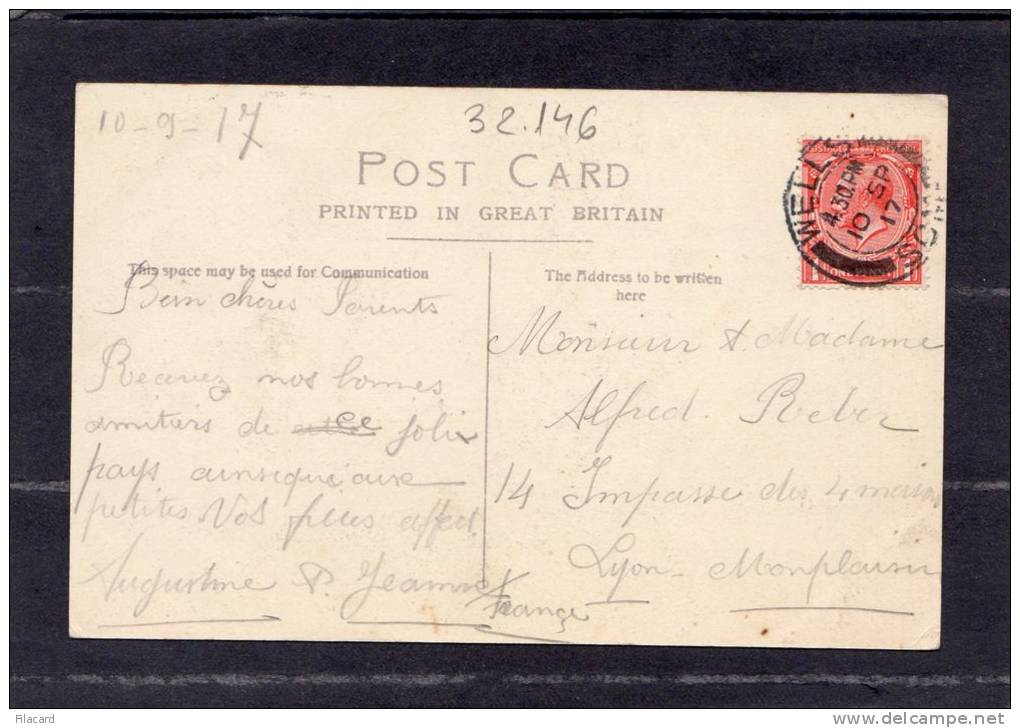 10-9-17
32.146
POST CARD
PRINTED IN GREAT BRITAIN
WELL
4.30.PM
10 SP
17
SOM
This space may be used for Communication
The Address to be written
here
Bien chères Parents
Recevez nos bonnes
amitiers de ce joli
pays ainseque aux
petites Vos feues affect.
Augustine & Jeanne
Monsieur & Madame
Alfred Reber
14 Impasse des 4 maisons
Lyon - Monplaisir
France
Filacard
delcampe.net